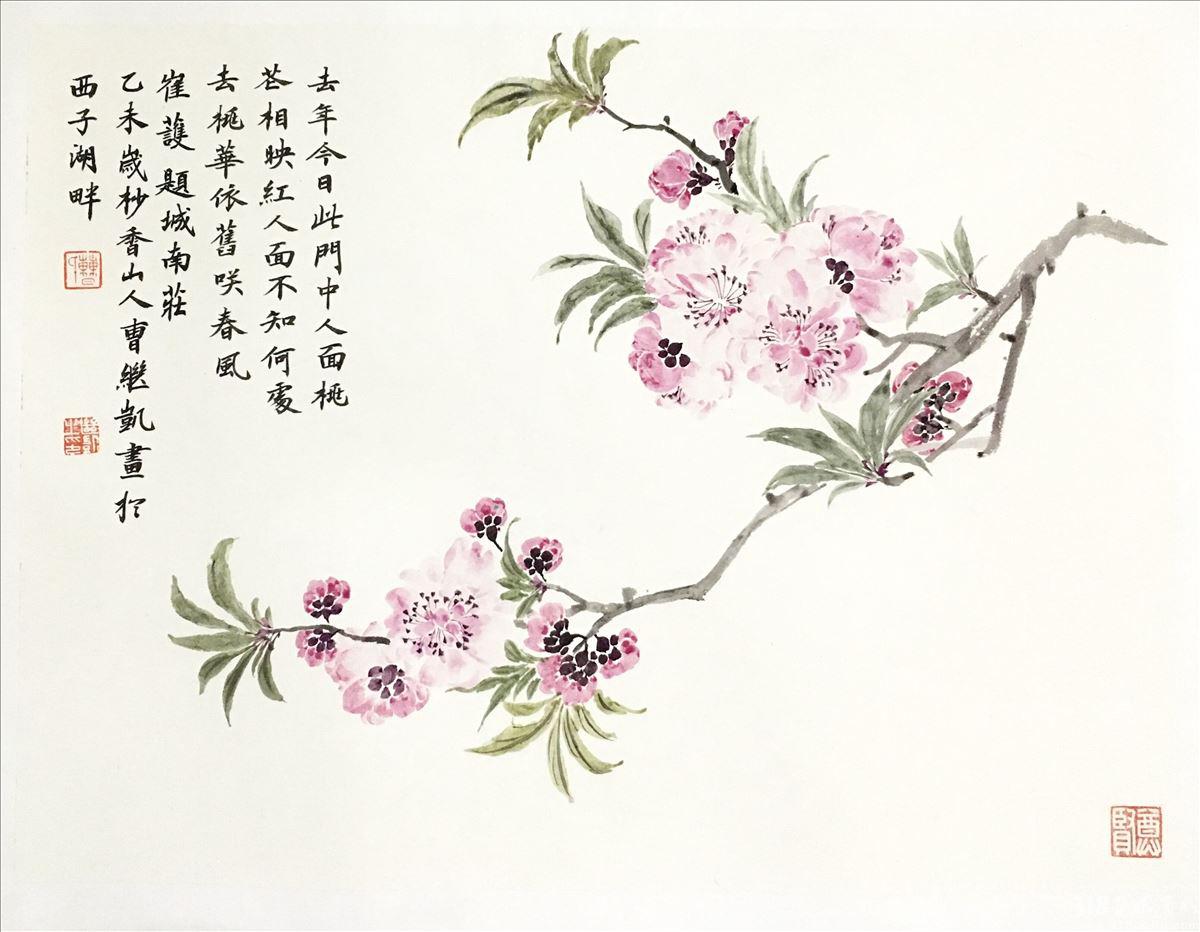 去年今日此門中人面桃
苍相映紅人面不知何處
去桃華依舊咲春風
崔護題城南莊
乙未歲杪香山人曹繼凱畫於
西子湖畔